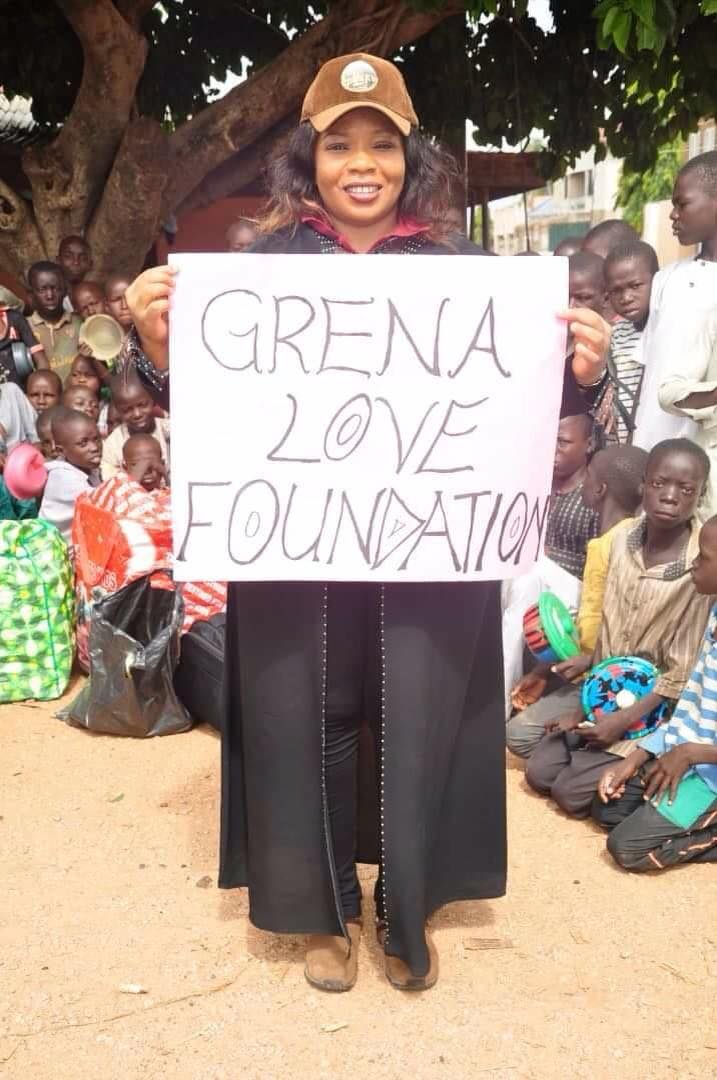 GRENA
LOVE
FOUNDATION